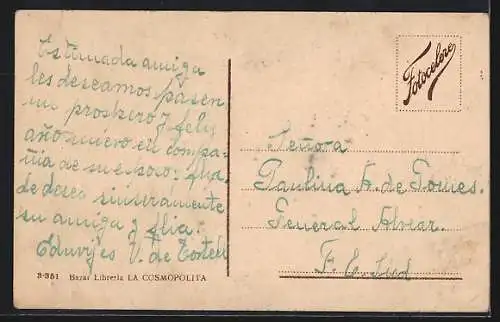 Estimada amiga
les deseamos pasen
un prospero y feliz
año nuevo en compa-
ñia de su esposo: flia.
le desea sinseramente
su amiga y flia.
Eduvijes V. de Costell
3-351 Bazar Librería LA COSMOPOLITA
Fotocelere
Señora
Paulina A. de Gomes.
General Alvear.
F. C. Sud